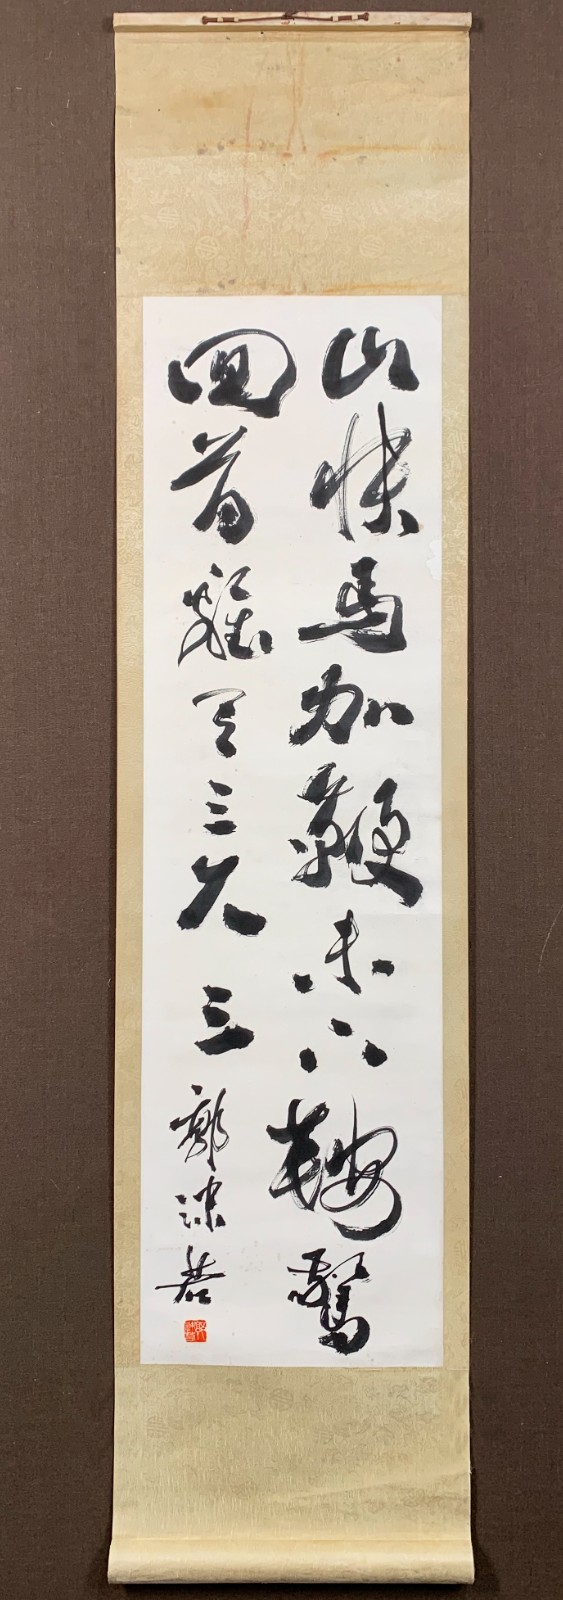 山快馬加鞭未下鞍驚
回首離天三尺三
郭沫若